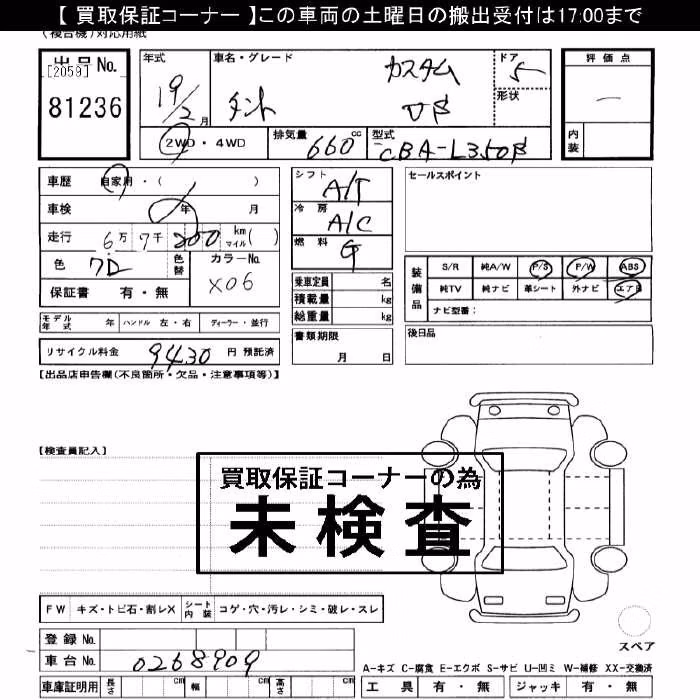 【 買取保証コーナー 】この車両の土曜日の搬出受付は17:00まで
(複合機) 対応用紙
出品No. [2059] 81236
年式 19/2月
車名・グレード タント カスタム
ドア 5
形状
評価点 ―
内装
2WD・4WD
排気量 660 cc
型式 CBA-L350S
車歴 自家用・( )
車検 年 月
走行 6万 7千 200 km マイル ( )
色
色替
カラーNo. X06
保証書 有・無
シフト A/T
冷房 A/C
燃料 G
乗車定員 名
積載量 kg
総重量 kg
書類期限 月 日
セールスポイント
装備品
S/R 純A/W P/S P/W ABS
純TV 純ナビ 革シート 外ナビ エアB
ナビ型番：
後日品
モデル年式 年 ハンドル 左・右 ディーラー・並行
リサイクル料金 9430 円 預託済
【出品店申告欄(不良箇所・欠品・注意事項等)】
【検査員記入】
買取保証コーナーの為
未検査
FW キズ・トビ石・割レX シート内装 コゲ・穴・汚レ・シミ・破レ・スレ
登録No.
車台No. 0268909
車庫証明用 長さ cm 幅 cm 高さ cm
スペア
A-キズ C-腐食 E-エクボ S-サビ U-凹ミ W-補修 XX-交換済
工具 有・無 ジャッキ 有・無